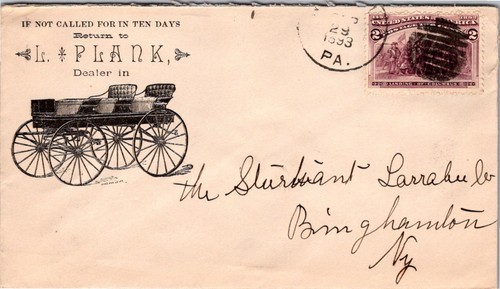 IF NOT CALLED FOR IN TEN DAYS
Return to
L. PLANK,
Dealer in
29
1893
PA.
1492 UNITED STATES OF AMERICA 1892
2 2
LANDING OF COLUMBUS
The Sturtivant Larrabee Co
Binghamton
Ny